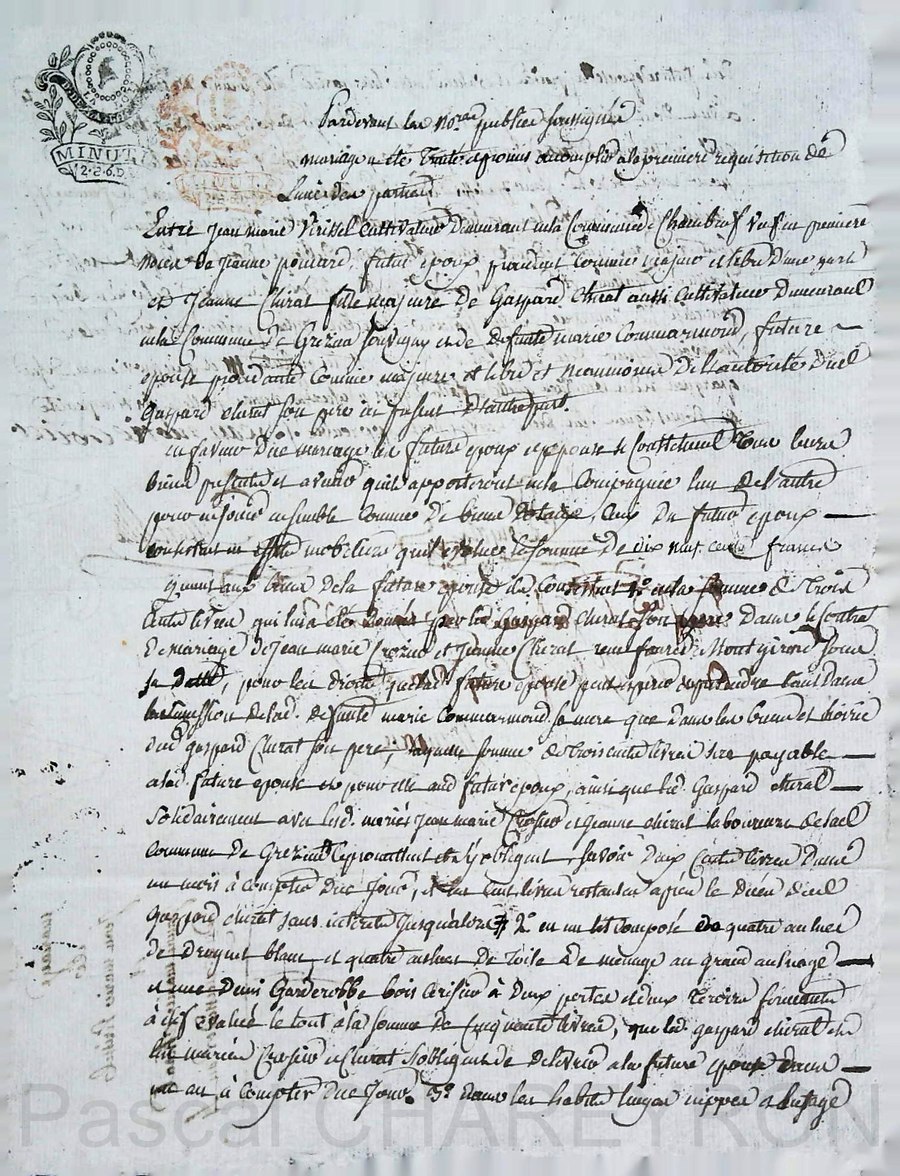 MINUTE
Pardevant les No.res publics soussignés
mariage a été traité et promis accomplir a la premiere requisition de
l'une des parties
Entre jean marie cultivateur demeurant en la Commune de Chambeuf veuf en premiere
noces de jeanne poncard, futur epoux procedant comme majeur et libre d'une part
et jeanne Chirat fille majeure de Gaspard chirat aussi cultivateur demeurant
en la Commune de Grezieu Souvigny et de defunte marie Commarmond, future
epouse procedante comme majeure et libre et neanmoins de l'autorité dud
Gaspard chirat son pere ici présent d'autre part.
en faveur duce mariage les futurs epoux et epouse se constituent tous leurs
biens présents et avenir qu'ils apporteront en la Compagnie l'un de l'autre
pour en jouir ensemble comme de biens dotaux, ceux du futur epoux
consistant en effets mobiliers qu'il évalue la somme de dix neuf cents francs
quant aux biens de la future epouse ils consistent 1.o en la somme de trois
cents livres qui lui a été donnée par led Gaspard chirat son pere dans le Contrat
de mariage de jean marie Crozier et jeanne Chirat
sa dotte, pour les droits que lad. future epouse peut espérer et prétendre tant dans
la succession de lad. defunte marie Commarmond sa mere que dans les biens et hoirie
dud gaspard chirat son pere, laquelle somme de trois cents livres sera payable
a lad. future epouse et pour elle aud futur epoux, ainsi que led. Gaspard chirat
solidairement avec lesd. mariés jean marie Crozier et jeanne chirat laboureurs de lad
commune de Grezieu le promettent et s'y obligent, savoir deux cents livres dans
un mois à compter de ce jour, et les cent livres restantes après le décès dud
gaspard chirat sans interets jusqu'alors 2.o en un lit composé de quatre aulnes
de droguet blanc et quatre aulnes de toile de menage au grand aulnage
et une demi Garderobbe bois cerisier à deux portes et deux tiroirs fermante
à clef evalué le tout à la somme de cinquante livres, que led. gaspard chirat et
les mariés Crozier et chirat s'obligent de délivrer a la future epouse dans
un an à compter de ce jour. 3.o dans les habits linges nippes a l'usage
Pascal CHAREYRON